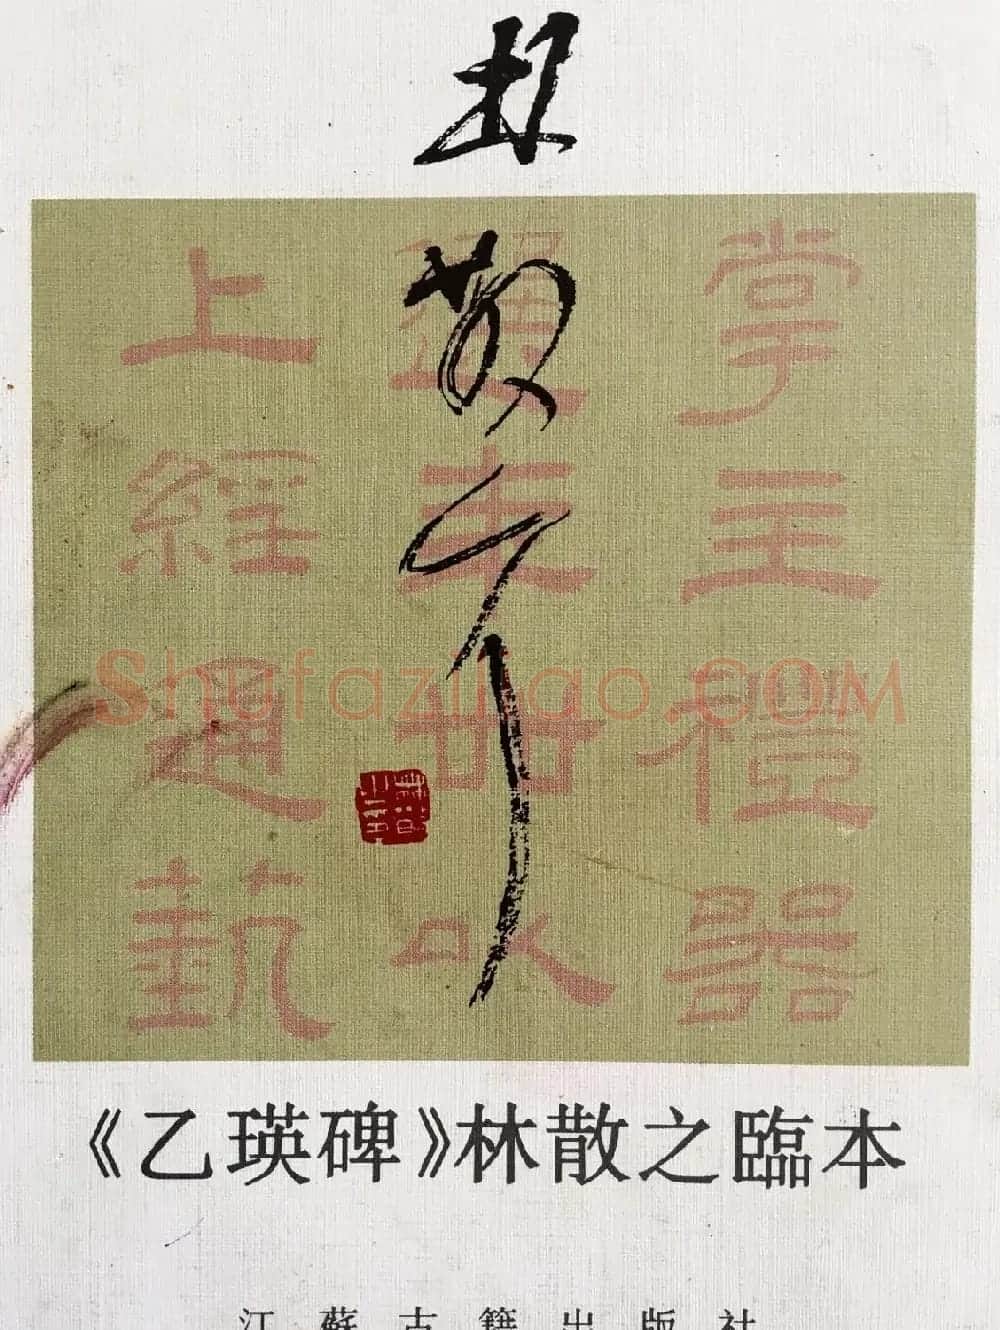 林散耳
掌主禮器
選年卌以
上經通藝
Shufaziliao.COM
《乙瑛碑》林散之臨本
江蘇古籍出版社